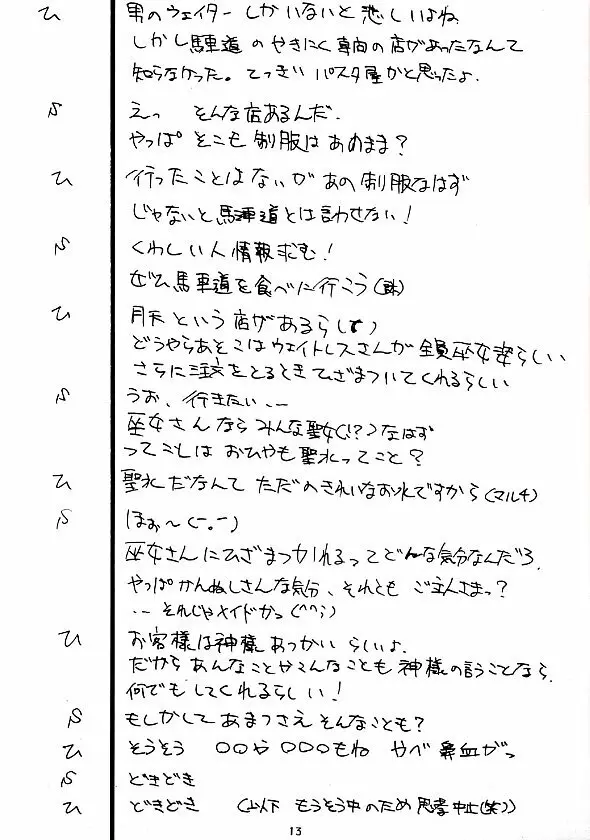 ひ 男のウェイターしかいないと悲しいよね
しかし馬車道のやきにく専向の店があったなんて
知らなかった。てっきりパスタ屋かと思ったよ.
S えっ そんな店あるんだ.
やっぱそこも制服はあのまま?
ひ 行ったことはないがあの制服なはず
じゃないと馬車道とは言わせない!
S くわしい人情報求む!
ぜひ馬車道を食べに行こう(謎)
ひ 月天という店があるらしい
どうやらあそこはウェイトレスさんが全員巫女姿らしい
さらに注文をとるときひざまついてくれるらしい
S うお、行きたい...
巫女さんならみんな聖女(!?)なはず
ってことはおひやも聖水ってこと?
ひ 聖水だなんてただのきれいなお水ですから(マルチ)
S ほぉ〜(-。-)
巫女さんにひざまつかれるってどんな気分なんだろ.
やっぱかんぬしさんな気分、それともご主人さまっ?
... それじゃメイドかっ(^^;)
ひ お客様は神様あっかいらしいよ.
だからあんなことやこんなことも神様の言うことなら.
何でもしてくれるらしい!
S もしかしてあまつさえそんなことも?
ひ そうそう ○○や○○○もね やべ鼻血がっ
S どきどき
ひ どきどき (以下 もうそう中のため思考中止(笑))
13